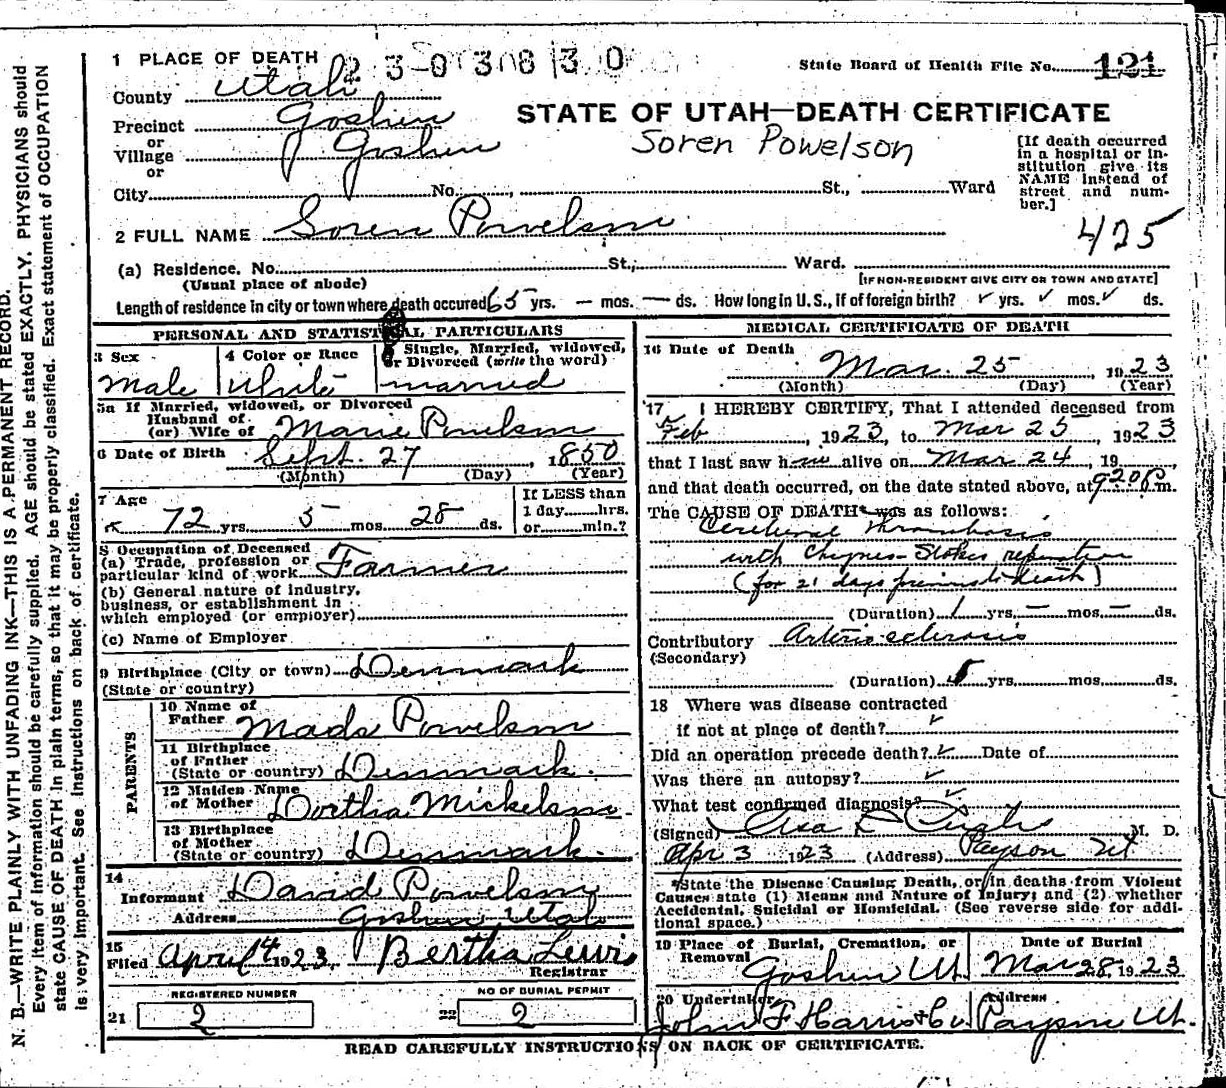 1 PLACE OF DEATH 2 3 0 3 0 8 3 0
State Board of Health File No. 121
County Utah
STATE OF UTAH—DEATH CERTIFICATE
Precinct Goshen
Soren Powelson
or
Village Goshen
or
City No. St., Ward
[If death occurred in a hospital or institution give its NAME instead of street and number.]
2 FULL NAME Soren Powelson
425
(a) Residence. No. St., Ward.
(Usual place of abode) [IF NON-RESIDENT GIVE CITY OR TOWN AND STATE]
Length of residence in city or town where death occured 65 yrs. — mos. — ds. How long in U. S., if of foreign birth? ✓ yrs. ✓ mos. ✓ ds.
PERSONAL AND STATISTICAL PARTICULARS
3 Sex
Male
4 Color or Race
White
5 Single, Married, widowed, or Divorced (write the word)
married
5a If Married, widowed, or Divorced
Husband of
(or) Wife of Marie Powelson
6 Date of Birth Sept. 27, 1850
(Month) (Day) (Year)
7 Age
72 yrs. 5 mos. 28 ds.
If LESS than
1 day......hrs.
or......min.?
8 Occupation of Deceased
(a) Trade, profession or
particular kind of work Farmer
(b) General nature of industry,
business, or establishment in
which employed (or employer)
(c) Name of Employer
9 Birthplace (City or town) Denmark
(State or country)
PARENTS
10 Name of
Father Mads Powelson
11 Birthplace
of Father
(State or country) Denmark.
12 Maiden Name
of Mother Dorthia Mickelson.
13 Birthplace
of Mother
(State or country) Denmark.
14
Informant David Powelson
Address Goshen Utah
15
Filed April 4 1923, Bertha Lewis
Registrar
REGISTERED NUMBER
21 2
NO OF BURIAL PERMIT
22 2
MEDICAL CERTIFICATE OF DEATH
16 Date of Death
Mar. 25 1923
(Month) (Day) (Year)
17 I HEREBY CERTIFY, That I attended deceased from
Feb 5, 1923, to Mar 25, 1923
that I last saw him alive on Mar 24, 19
and that death occurred, on the date stated above, at 920 P m.
The CAUSE OF DEATH* was as follows:
Cerebral Thrombosis
with Cheynes-Stokes respiration
(for 21 days previous to death)
(Duration) 1 yrs. — mos. — ds.
Contributory Arterio-sclerosis
(Secondary)
(Duration) 5 yrs. mos. ds.
18 Where was disease contracted
if not at place of death? ✓
Did an operation precede death? ✓ Date of
Was there an autopsy? ✓
What test confirmed diagnosis? ✓
(Signed) Asa L Curtis M. D.
Apr 3 1923 (Address) Payson Ut
*State the Disease Causing Death, or in deaths from Violent
Causes state (1) Means and Nature of Injury; and (2) whether
Accidental, Suicidal or Homicidal. (See reverse side for addi-
tional space.)
19 Place of Burial, Cremation, or
Removal
Goshen Ut.
Date of Burial
Mar 28, 1923
20 Undertaker
John F Harris & Co
Address
Payson Ut.
READ CAREFULLY INSTRUCTIONS ON BACK OF CERTIFICATE.
N. B.—WRITE PLAINLY WITH UNFADING INK—THIS IS A PERMANENT RECORD.
Every item of information should be carefully supplied. AGE should be stated EXACTLY. PHYSICIANS should
state CAUSE OF DEATH in plain terms, so that it may be properly classified. Exact statement of OCCUPATION
is very important. See instructions on back of certificate.